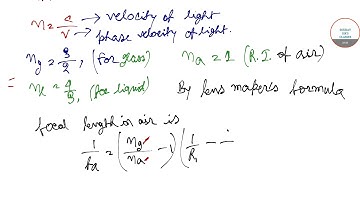 n = c/v → velocity of light
→ phase velocity of light.
ng = 3/2, (for glass) na = 1 (R.I. of air)
= nl = 4/3, (for liquid) By lens maker's formula
focal length in air is
1/fa = (ng/na - 1) (1/R1 -